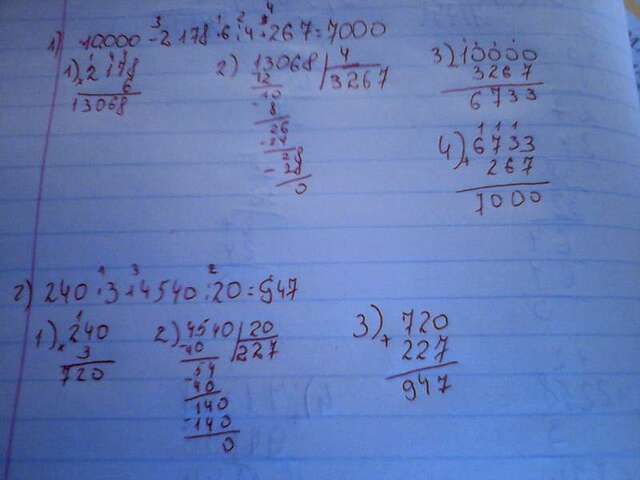 1) 10000 - 2178 · 6 : 4 + 267 = 7000
3 1 2 4
1) 2178
× 6
13068
2) 13068 | 4
12 3267
10
- 8
26
- 24
28
- 28
0
3) 10000
3267
6733
1 1 1
4) 6733
+ 267
7000
1 3 2
2) 240 · 3 + 4540 : 20 = 947
1) 240
× 3
720
2) 4540 | 20
- 40 227
54
- 40
140
- 140
0
3) 720
+ 227
947